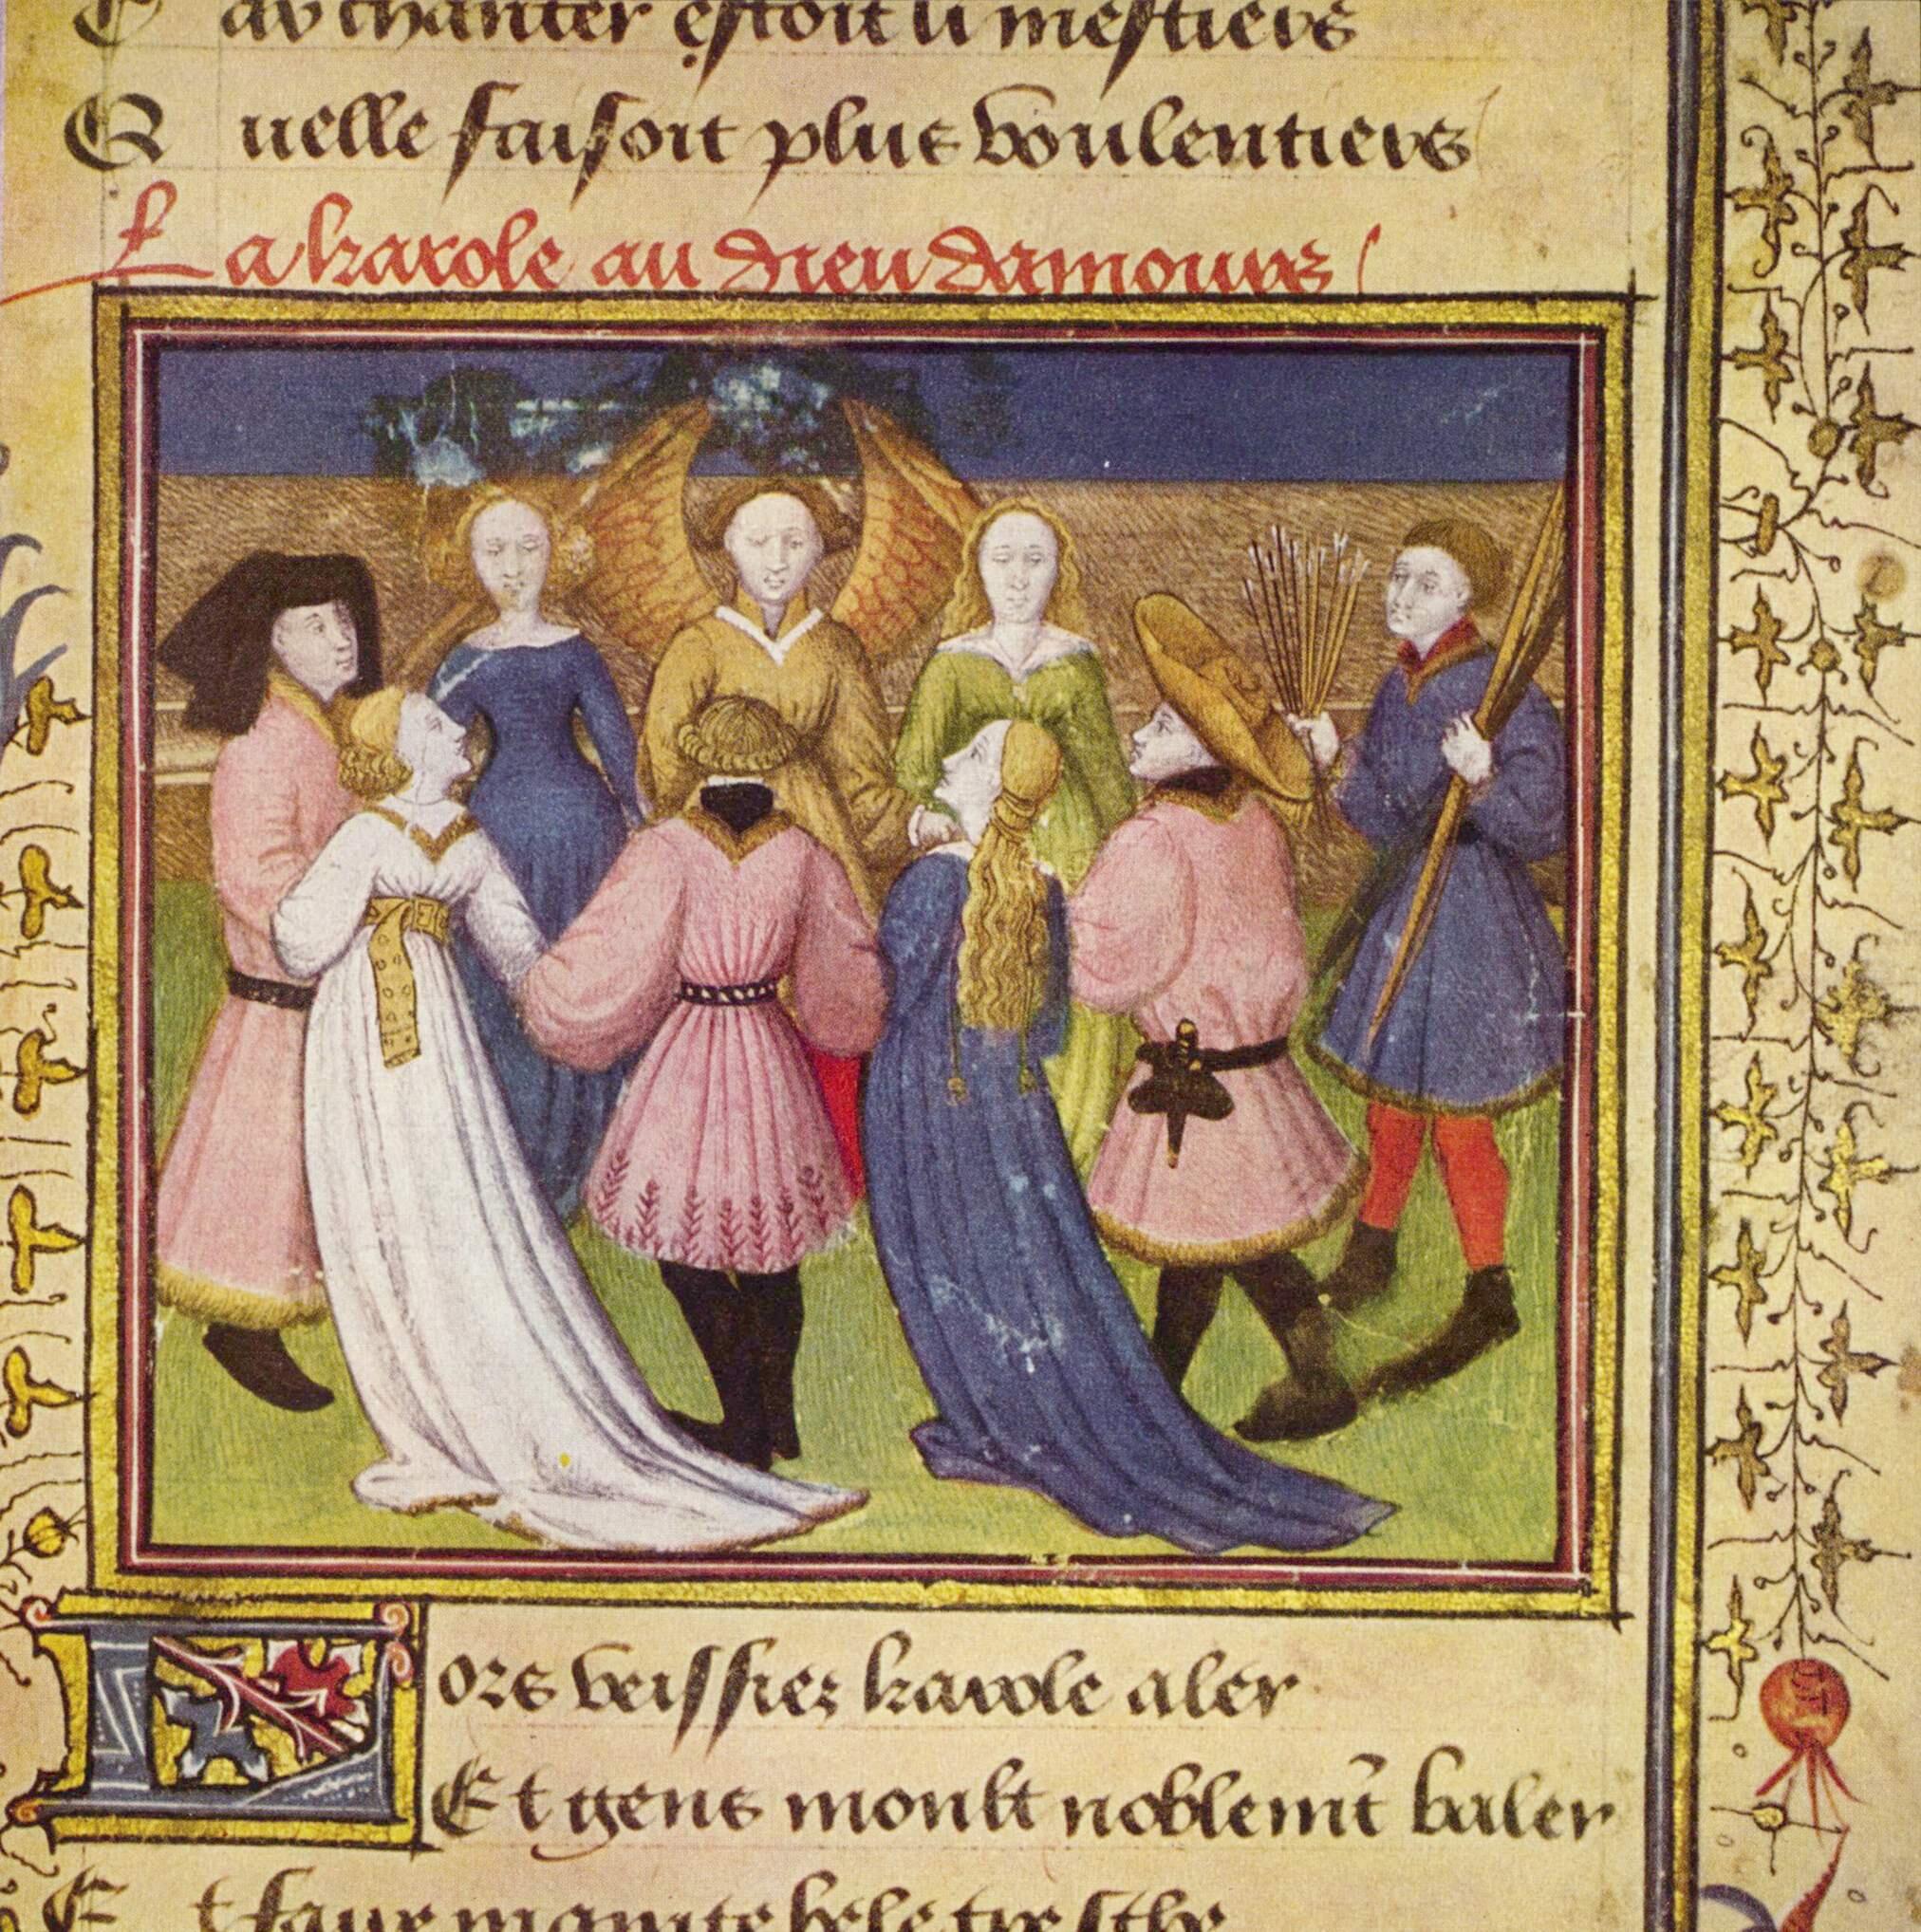 C au chanter estoit li mestiers
Q uelle faisoit plus voulentiers
La karole au dieu damours
Lors veissiez karole aler
Et gens moult noblemt̃ baler
E t faire mainte bele tresche